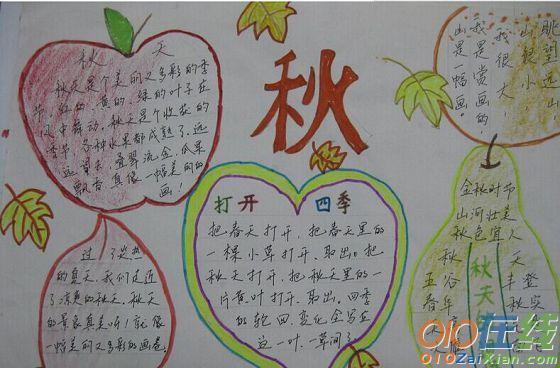 秋天
秋天是个美丽又多彩的季
节,红的、黄的、绿的叶子在
风中舞动。秋天是个收获的
季节,各种水果都成熟了。远
远望去,叠翠流金,瓜果
飘香,真像一幅美丽的
画!
秋
眺望远山,
山很小,
我很大,
我是赏画的,
山是一幅画。
打开 四季
把春天打开,把春天里的
一棵小草打开,取出。把
秋天打开,把秋天里的一
片黄叶打开,取出。四季
的轮回,变化全写在
这一叶一草间了
过了炎热
的夏天,我们走近
了凉爽的秋天,秋天
的景良真美听!就像
一幅美丽又多彩的画卷。
金秋时节
山河壮美
秋色宜人
秋天
五谷丰登
春华秋实
010在线
010ZaiXian.com